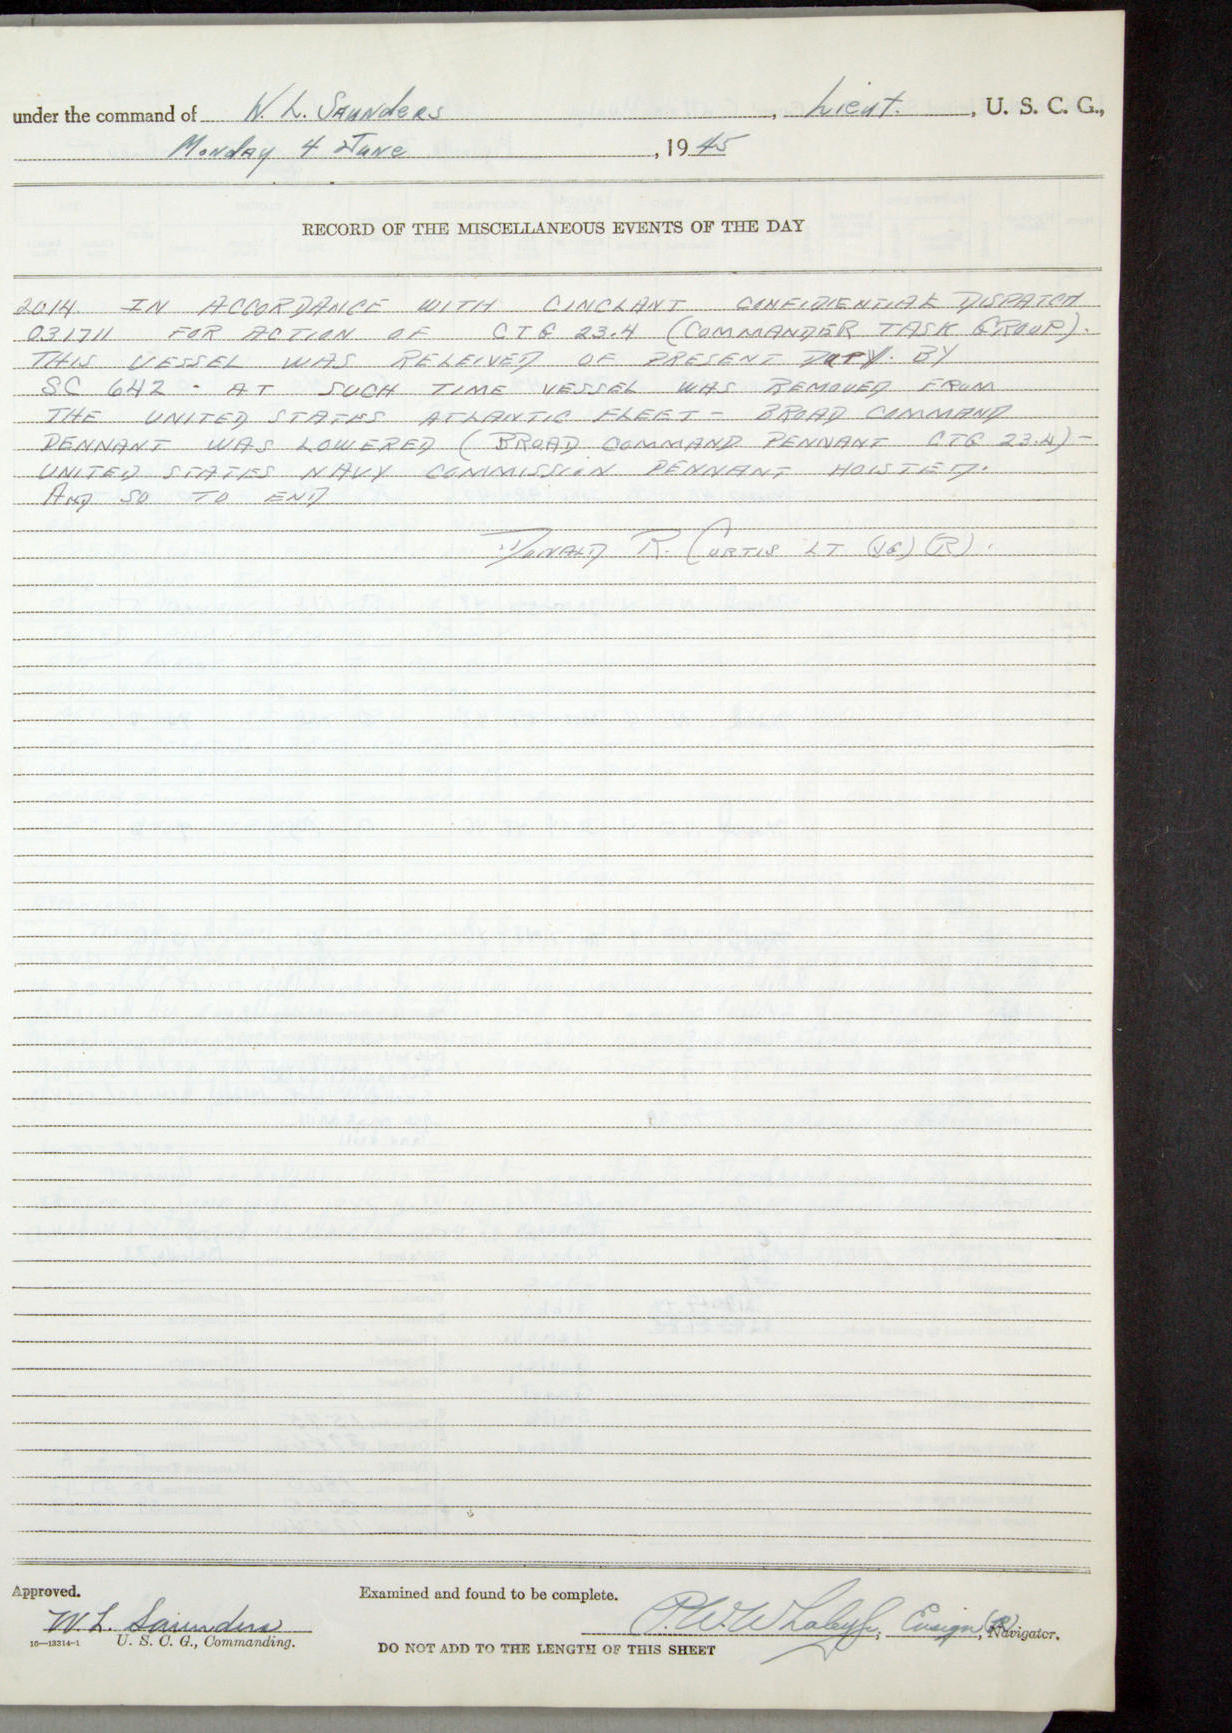 under the command of W. L. Saunders, Lieut., U. S. C. G.,
Monday 4 June, 1945
RECORD OF THE MISCELLANEOUS EVENTS OF THE DAY
2014. IN ACCORDANCE WITH CINCLANT CONFIDENTIAL DISPATCH
031711 FOR ACTION OF CTG 23.4 (COMMANDER TASK GROUP).
THIS VESSEL WAS RELEIVED OF PRESENT DUTY. BY
SC 642 - AT SUCH TIME VESSEL WAS REMOVED FROM
THE UNITED STATES ATLANTIC FLEET - BROAD COMMAND
PENNANT WAS LOWERED (BROAD COMMAND PENNANT CTG 23.4) -
UNITED STATES NAVY COMMISSION PENNANT HOISTED.
AND SO TO END
DONALD R. CURTIS LT (JG) (R).
Approved.
Examined and found to be complete.
W. L. Saunders
P. W. Whaley Jr., Ensign (R), Navigator.
16—13314-1 U. S. C. G., Commanding.
DO NOT ADD TO THE LENGTH OF THIS SHEET